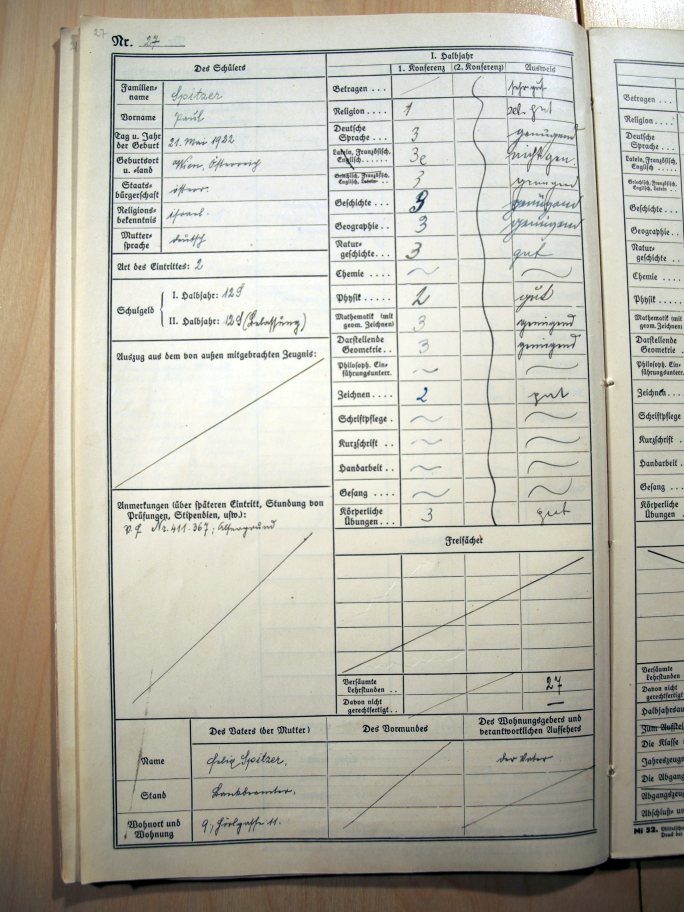 27
Nr. 27
Des Schülers
Familienname Spitzer
Vorname Paul
Tag u. Jahr der Geburt 21. Mai 1922
Geburtsort u. -land Wien, Österreich
Staatsbürgerschaft österr.
Religionsbekenntnis israel.
Muttersprache deutsch
Art des Eintrittes: 2
Schulgeld
I. Halbjahr: 12 S
II. Halbjahr: 12 S
Auszug aus dem von außen mitgebrachten Zeugnis:
Anmerkungen (über späteren Eintritt, Stundung von
Prüfungen, Stipendien, usw.):
Nr. 411-367; Alsergrund
I. Halbjahr
1. Konferenz (2. Konferenz) Ausweis
Betragen . . . sehr gut
Religion . . . . 1 gut
Deutsche
Sprache . . . 3 genügend
Latein, Französisch,
Englisch . . . . . . 3 nicht gen.
Griechisch, Französisch,
Englisch, Latein . . 3 genügend
Geschichte . . 3 genügend
Geographie . . 3 genügend
Natur-
geschichte . . 3 gut
Chemie . . . .
Physik . . . . . 2 gut
Mathematik (mit
geom. Zeichnen) 3 genügend
Darstellende
Geometrie . . 3 genügend
Philosoph. Ein-
führungsunterr.
Zeichnen . . . . 2 gut
Schriftpflege .
Kurzschrift . .
Handarbeit . .
Gesang . . . .
Körperliche
Übungen . . . 3 gut
Freifächer
Versäumte
Lehrstunden . . 27
Davon nicht
gerechtfertigt . . —
Des Vaters (der Mutter) Des Vormundes Des Wohnungsgebers und
verantwortlichen Aufsehers
Name Felix Spitzer. der Vater
Stand Bankbeamter.
Wohnort und
Wohnung 9., Hörlgasse 11.
Betragen . . .
Religion . . . .
Deutsche
Sprache . . .
Latein, Französisch,
Englisch . . . . . .
Griechisch, Französisch,
Englisch, Latein . .
Geschichte . .
Geographie . .
Natur-
geschichte . .
Chemie . . . .
Physik . . . . .
Mathematik (mit
geom. Zeichnen)
Darstellende
Geometrie . .
Philosoph. Ein-
führungsunterr.
Zeichnen . . . .
Schriftpflege .
Kurzschrift . .
Handarbeit . .
Gesang . . . .
Körperliche
Übungen . . .
Versäumte
Lehrstunden . .
Davon nicht
gerechtfertigt . .
Die Klasse
Die Abgang
Mi 52.